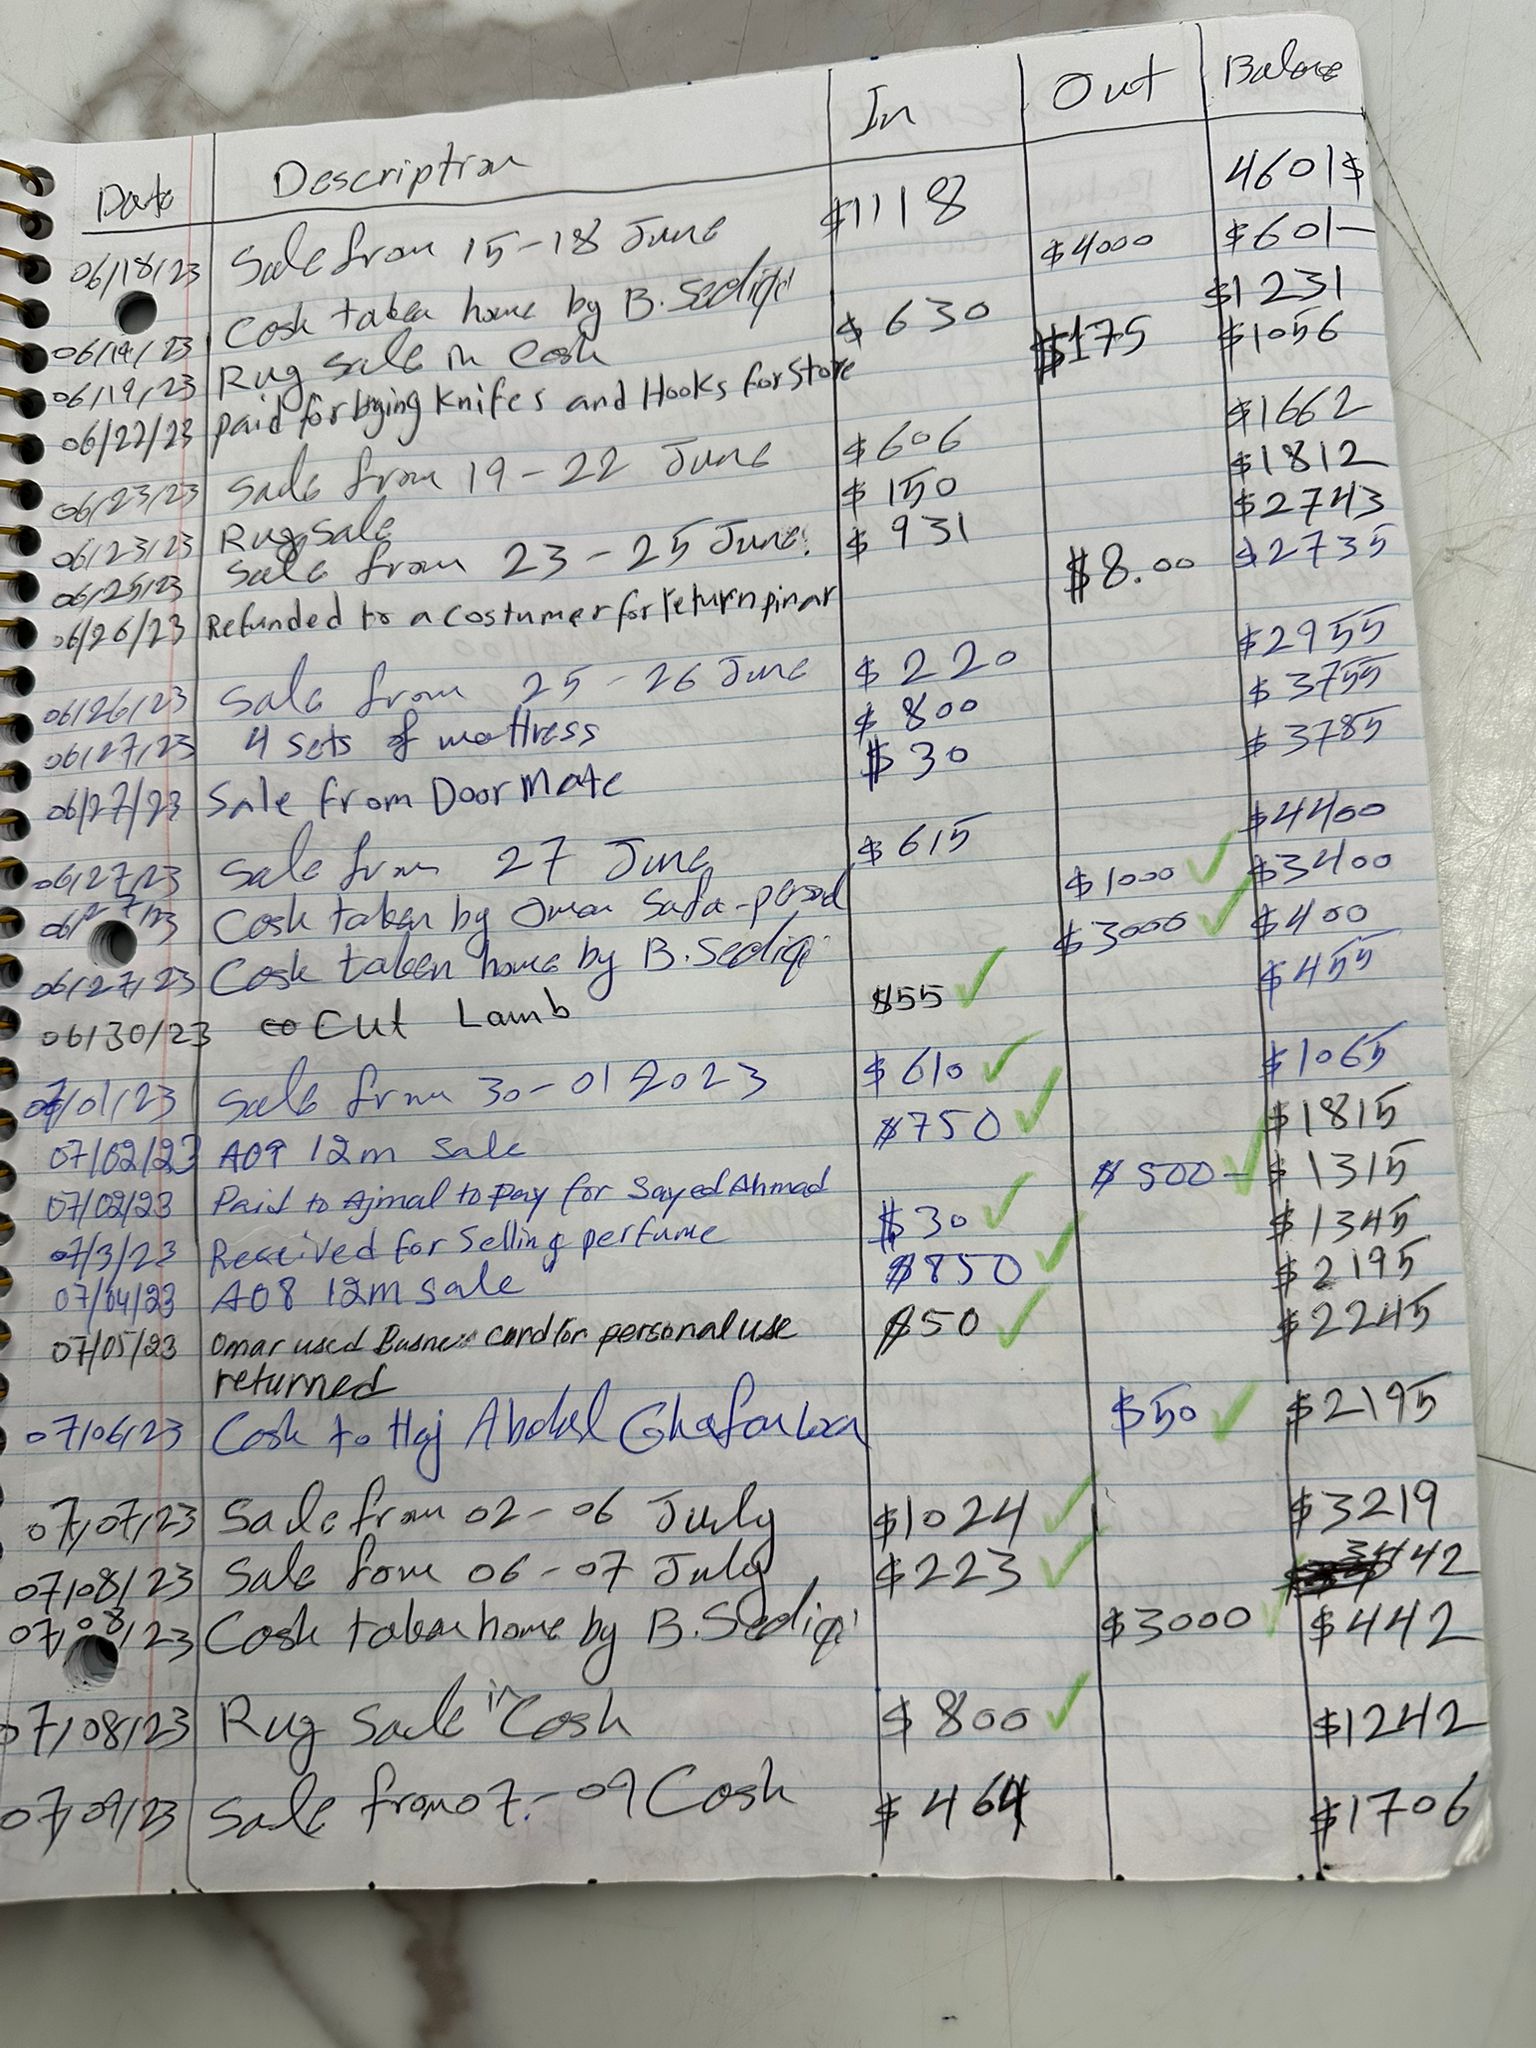 Date Description In Out Balance
06/18/23 Sale from 15-18 June $1118 4601$
06/19/23 Cash taken home by B. Sediqi $4000 $601-
06/19/23 Rug sale in Cash $630 $1231
06/22/23 paid for bying knifes and Hooks for Store $175 $1056
06/23/23 Sale from 19-22 June $606 $1662
06/23/23 Rug Sale $150 $1812
06/25/23 Sale from 23-25 June. $931 $2743
06/26/23 Refunded to a costumer for return $8.00 $2735
06/26/23 Sale from 25-26 June $220 $2955
06/27/23 4 sets of mattress $800 $3755
06/27/23 Sale from Door Mate $30 $3785
06/27/23 Sale from 27 June $615 $4400
06/27/23 Cash taken by Omar Safa- $1000 ✓ $3400
06/27/23 Cash taken home by B. Sediqi $3000 ✓ $400
06/30/23 Cut Lamb $55 ✓ $455
07/01/23 Sale from 30-01 2023 $610 ✓ $1065
07/02/23 A09 12m sale $750 ✓ $1815
07/02/23 Paid to Ajmal to pay for Sayed Ahmad $500- ✓ $1315
07/3/23 Received for Selling perfume $30 ✓ $1345
07/04/23 A08 12m sale $850 ✓ $2195
07/05/23 Omar used Business card for personal use $50 ✓ $2245
returned
07/06/23 Cash to Haj Abdul $50 ✓ $2195
07/07/23 Sale from 02-06 July $1024 ✓ $3219
07/08/23 Sale from 06-07 July $223 ✓ 3442
07/08/23 Cash taken home by B. Sediqi $3000 ✓ $442
07/08/23 Rug Sale in Cash $800 ✓ $1242
07/09/23 Sale from 07-09 Cash $464 $1706